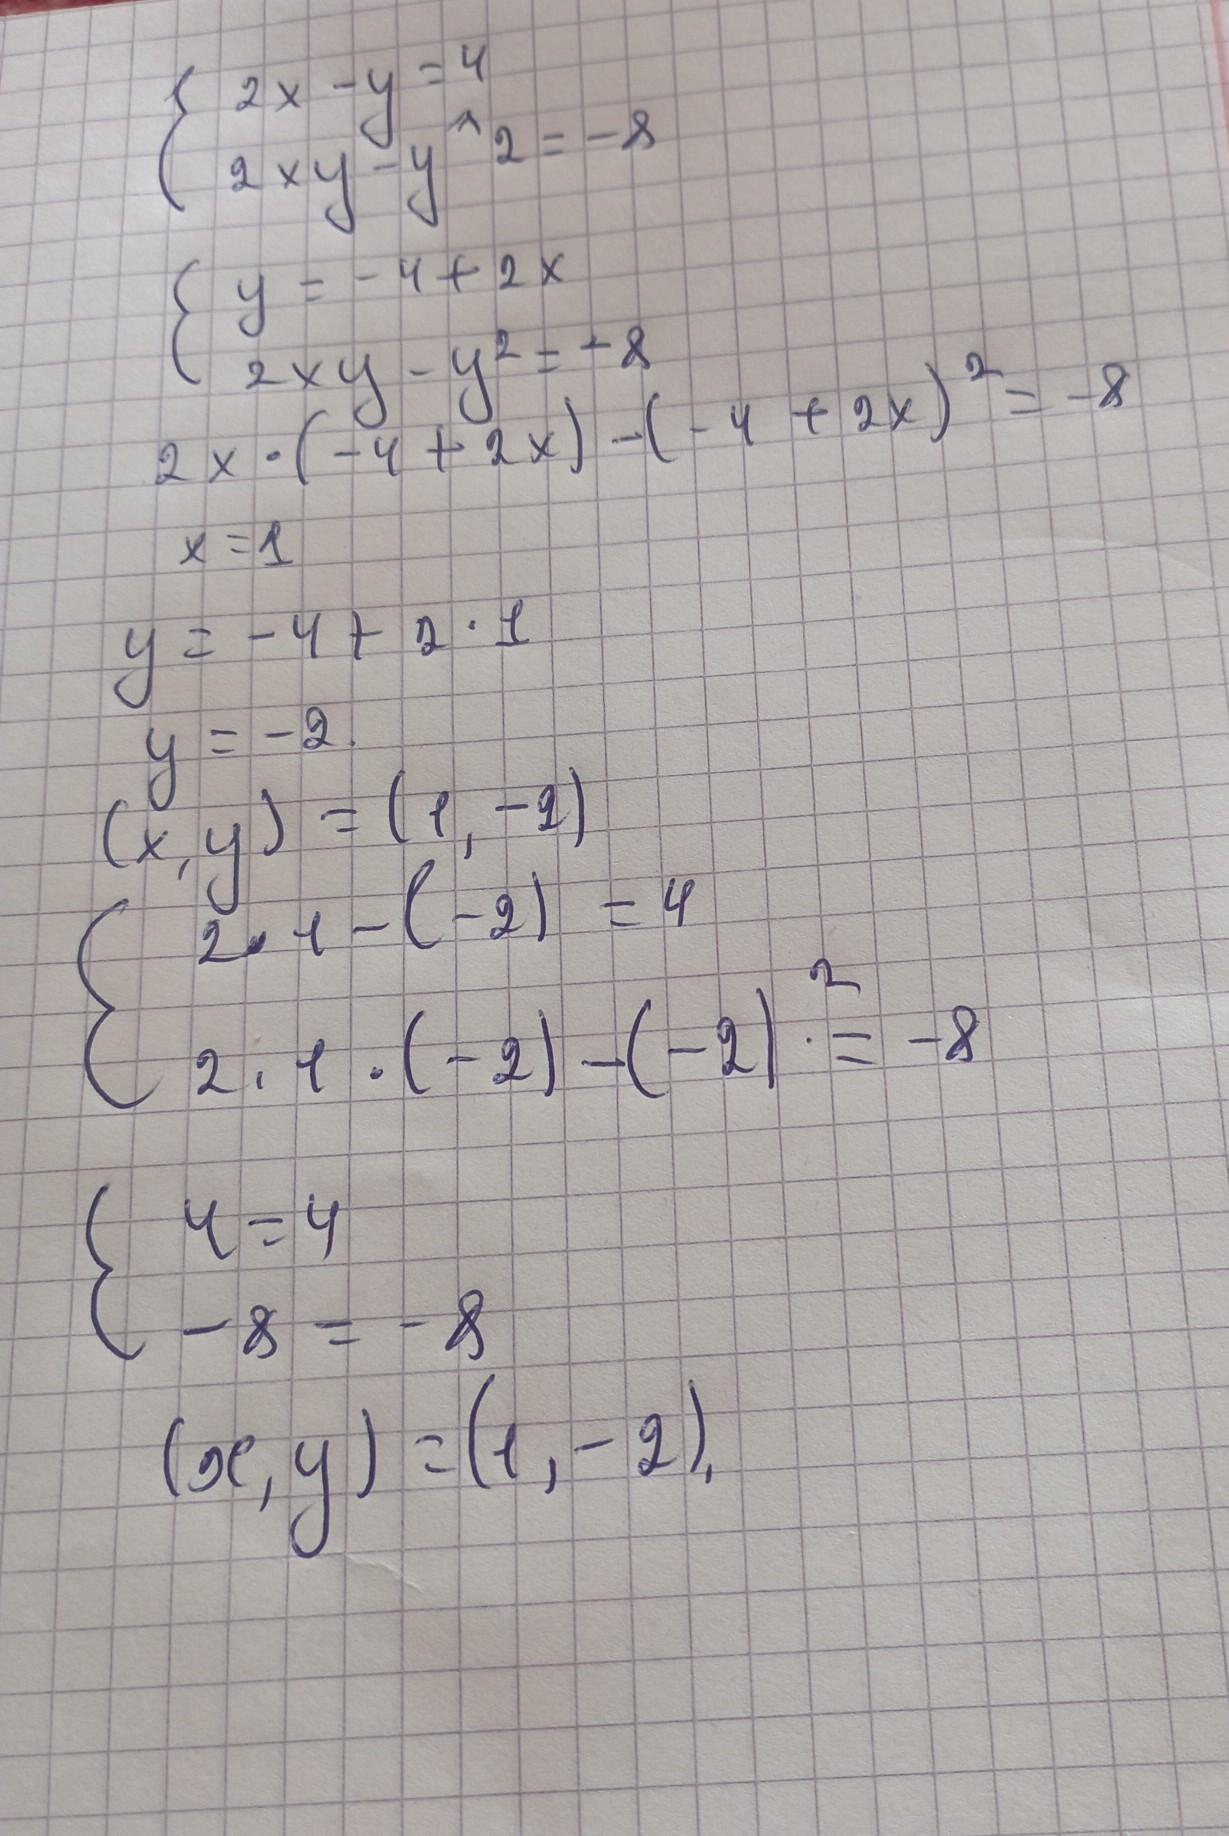 { 2x - y = 4
2xy - y^2 = -8
{ y = -4 + 2x
2xy - y² = -8
2x · (-4 + 2x) - (-4 + 2x)² = -8
x = 1
y = -4 + 2 · 1
y = -2
(x, y) = (1, -2)
{ 2 · 1 - (-2) = 4
2 · 1 · (-2) - (-2)² = -8
{ 4 = 4
-8 = -8
(x, y) = (1, -2).